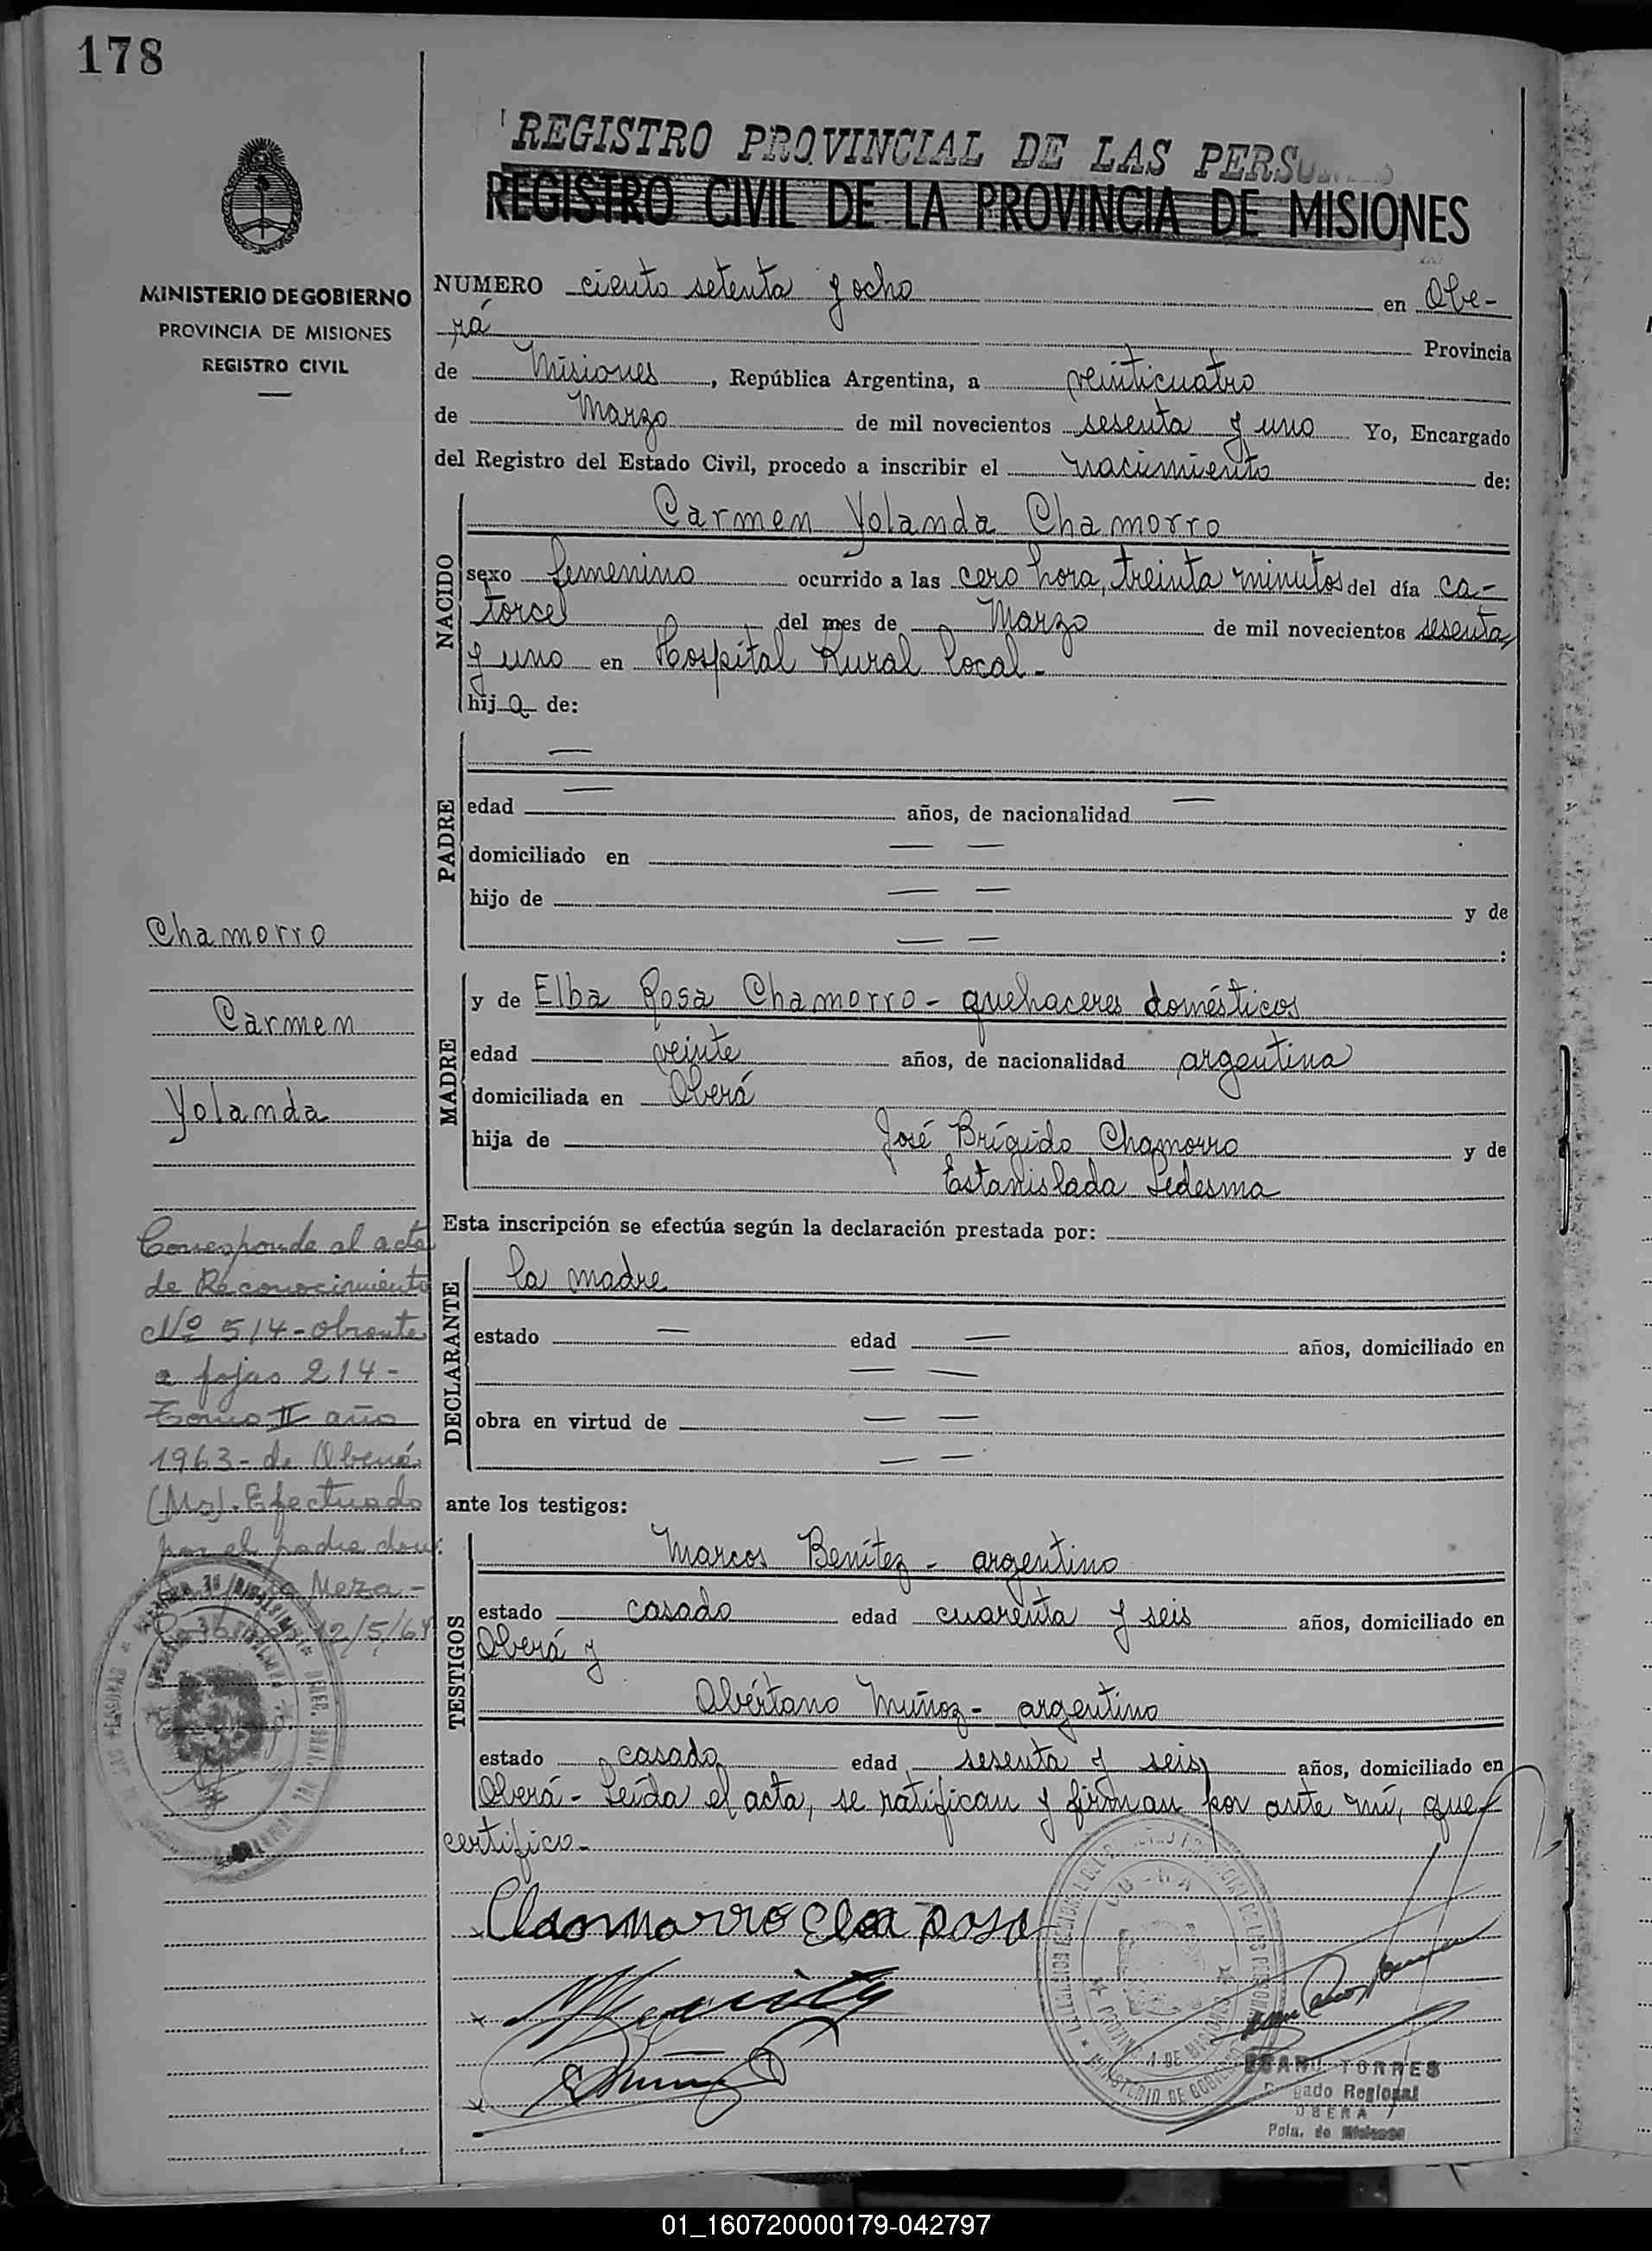 178
REGISTRO PROVINCIAL DE LAS
REGISTRO CIVIL DE LA PROVINCIA DE MISIONES
MINISTERIO DE GOBIERNO
PROVINCIA DE MISIONES
REGISTRO CIVIL
NUMERO ciento setenta y ocho en Obe-
rá Provincia
de Misiones, República Argentina, a veinticuatro
de Marzo de mil novecientos sesenta y uno Yo, Encargado
del Registro del Estado Civil, procedo a inscribir el nacimiento de:
NACIDO
Carmen Yolanda Chamorro
sexo femenino ocurrido a las cero hora, treinta minutos del día ca-
torce del mes de Marzo de mil novecientos sesenta
y uno en Hospital Rural Local.-
hija de:
PADRE
edad — años, de nacionalidad —
domiciliado en — —
hijo de — — y de
— — :
Chamorro
Carmen
Yolanda
MADRE
y de Elba Rosa Chamorro - quehaceres domésticos
edad veinte años, de nacionalidad argentina
domiciliada en Oberá
hija de José Brígido Chamorro y de
Estanislada Ledesma
Esta inscripción se efectúa según la declaración prestada por:
DECLARANTE
la madre
estado — edad — años, domiciliado en
— —
obra en virtud de — —
— —
Corresponde al acta
de Reconocimiento
Nº 514 - obrante
a fojas 214 -
Tomo II año
1963 - de Oberá
(Ms). Efectuado
por el padre don:
Meza -
12/5/64
ante los testigos:
TESTIGOS
Marcos Benítez - argentino
estado casado edad cuarenta y seis años, domiciliado en
Oberá y
Abértano Muñoz - argentino
estado casado edad sesenta y seis años, domiciliado en
Oberá - Leída el acta, se ratifican y firman por ante mí, que
certifico.-
Chamorro Elba Rosa
TORRES
Regional
OBERA
Pcia. de Misiones
01_160720000179-042797